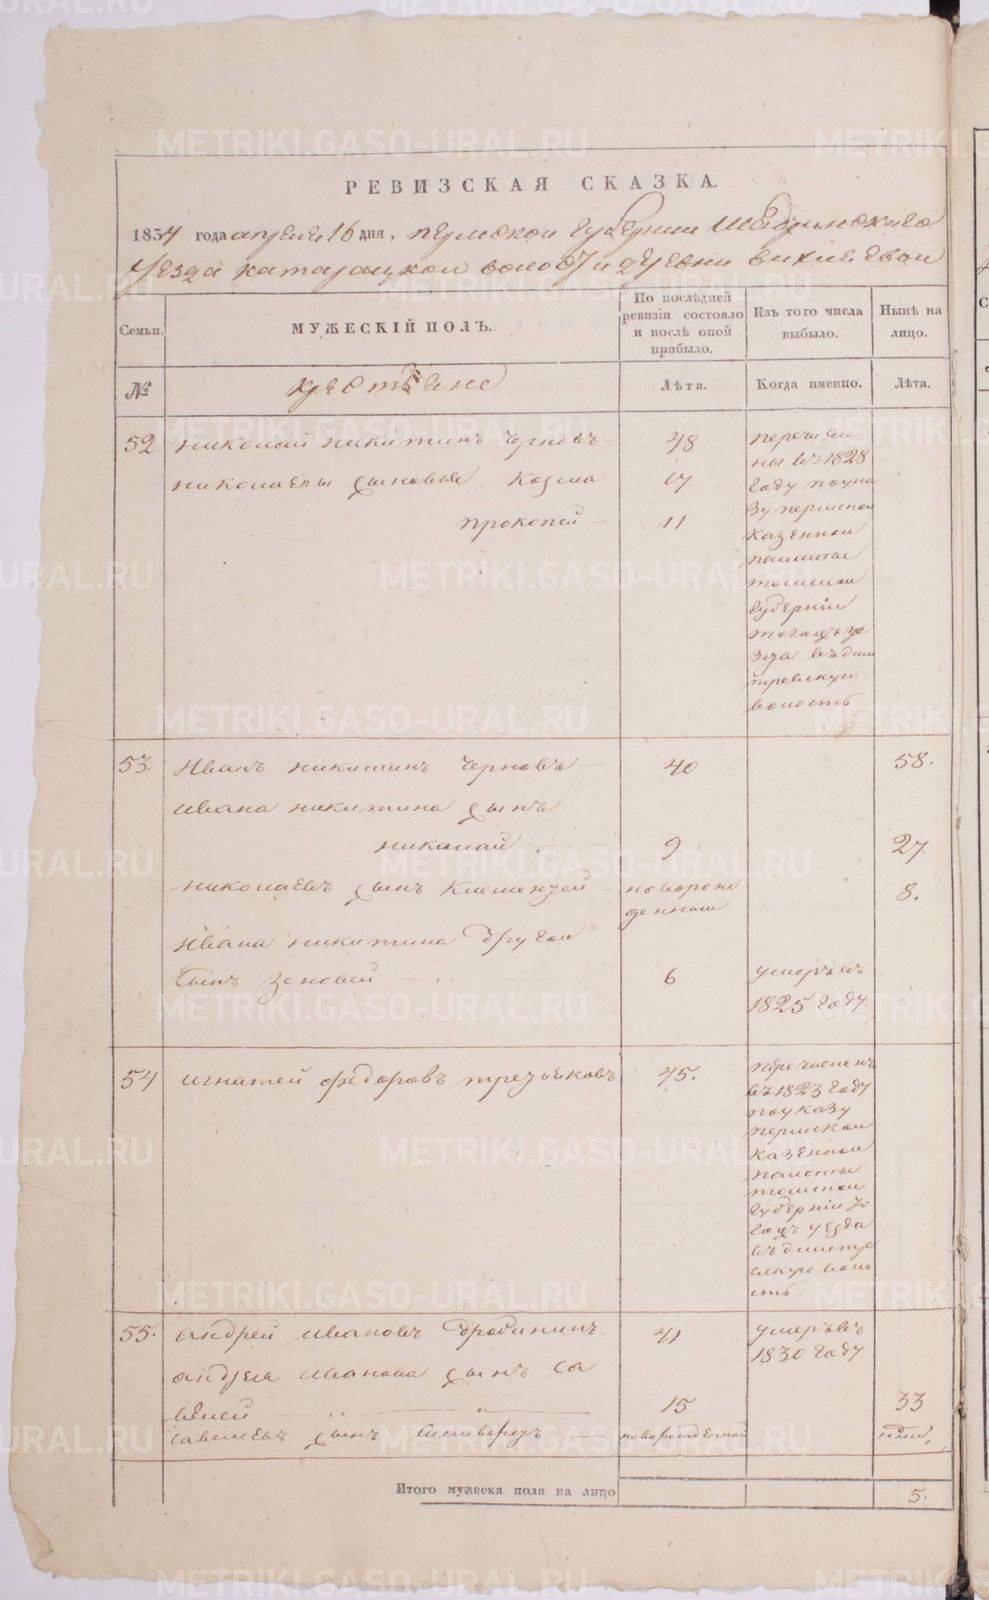 РЕВИЗСКАЯ СКАЗКА.
1834 года апреля 16 дня, пермской губернии Шадринского
уезда катарацкой волости деревни
Семьи.
МУЖЕСКІЙ ПОЛЪ.
По послѣдней ревизіи состояло и послѣ оной прибыло.
Изъ того числа выбыло.
Нынѣ на лицо.
№
крестьяне
Лѣта.
Когда именно.
Лѣта.
52 николай никитинъ черновъ 48
николаевы сыновья Козма 17
прокопей 11
перечисле
ны въ 1828
году по ука
зу пермской
казенной
палаты
томской
губерніи
уе
зда
волость
53. Иванъ никитинъ черновъ 40 58.
Ивана никитина сынъ
николай 9 27.
николаевъ сынъ Клементей новорож 8.
денный
Ивана никитина другой
сынъ зеновей 6 умеръ въ
1825 году
54 игнатей федоровъ третьяковъ 45.
перечисленъ
въ 1823 году
по указу
пермской
казенной
палаты
томской
губерніи
уезда
воло
сть.
55. андрей ивановъ дробининъ 41 умеръ въ
1830 году
андрея иванова сынъ са
велей 15 33
савелевъ сынъ новорожденной
Итого мужеска пола на лицо 5.
METRIKI.GASO-URAL.RU